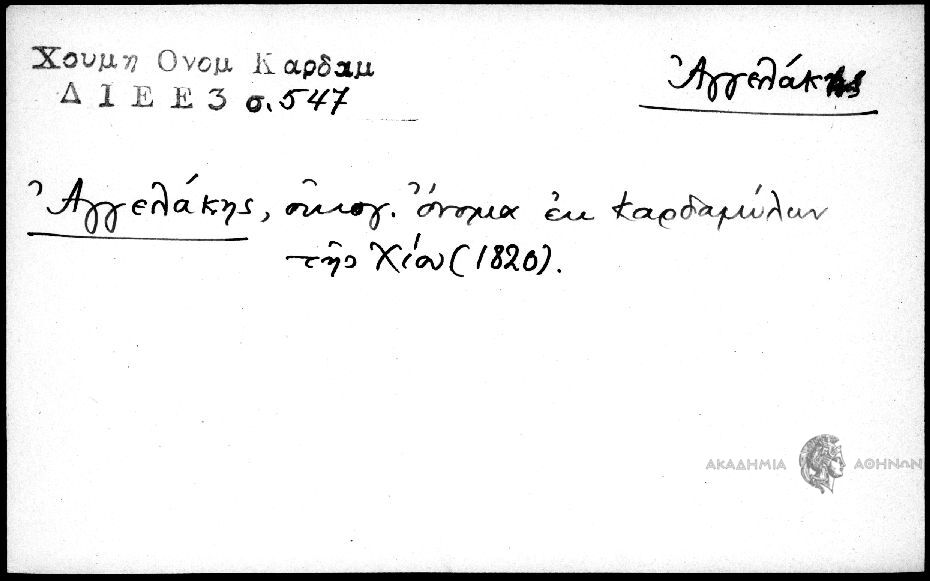 Χουμη Ονομ Καρδαμ
Δ Ι Ε Ε 3 σ. 547
Ἀγγελάκης
Ἀγγελάκης, οἰκογ. ὄνομα ἐκ Καρδαμύλων
τῆς Χίου (1820).
ΑΚΑΔΗΜΙΑ ΑΘΗΝΩΝ